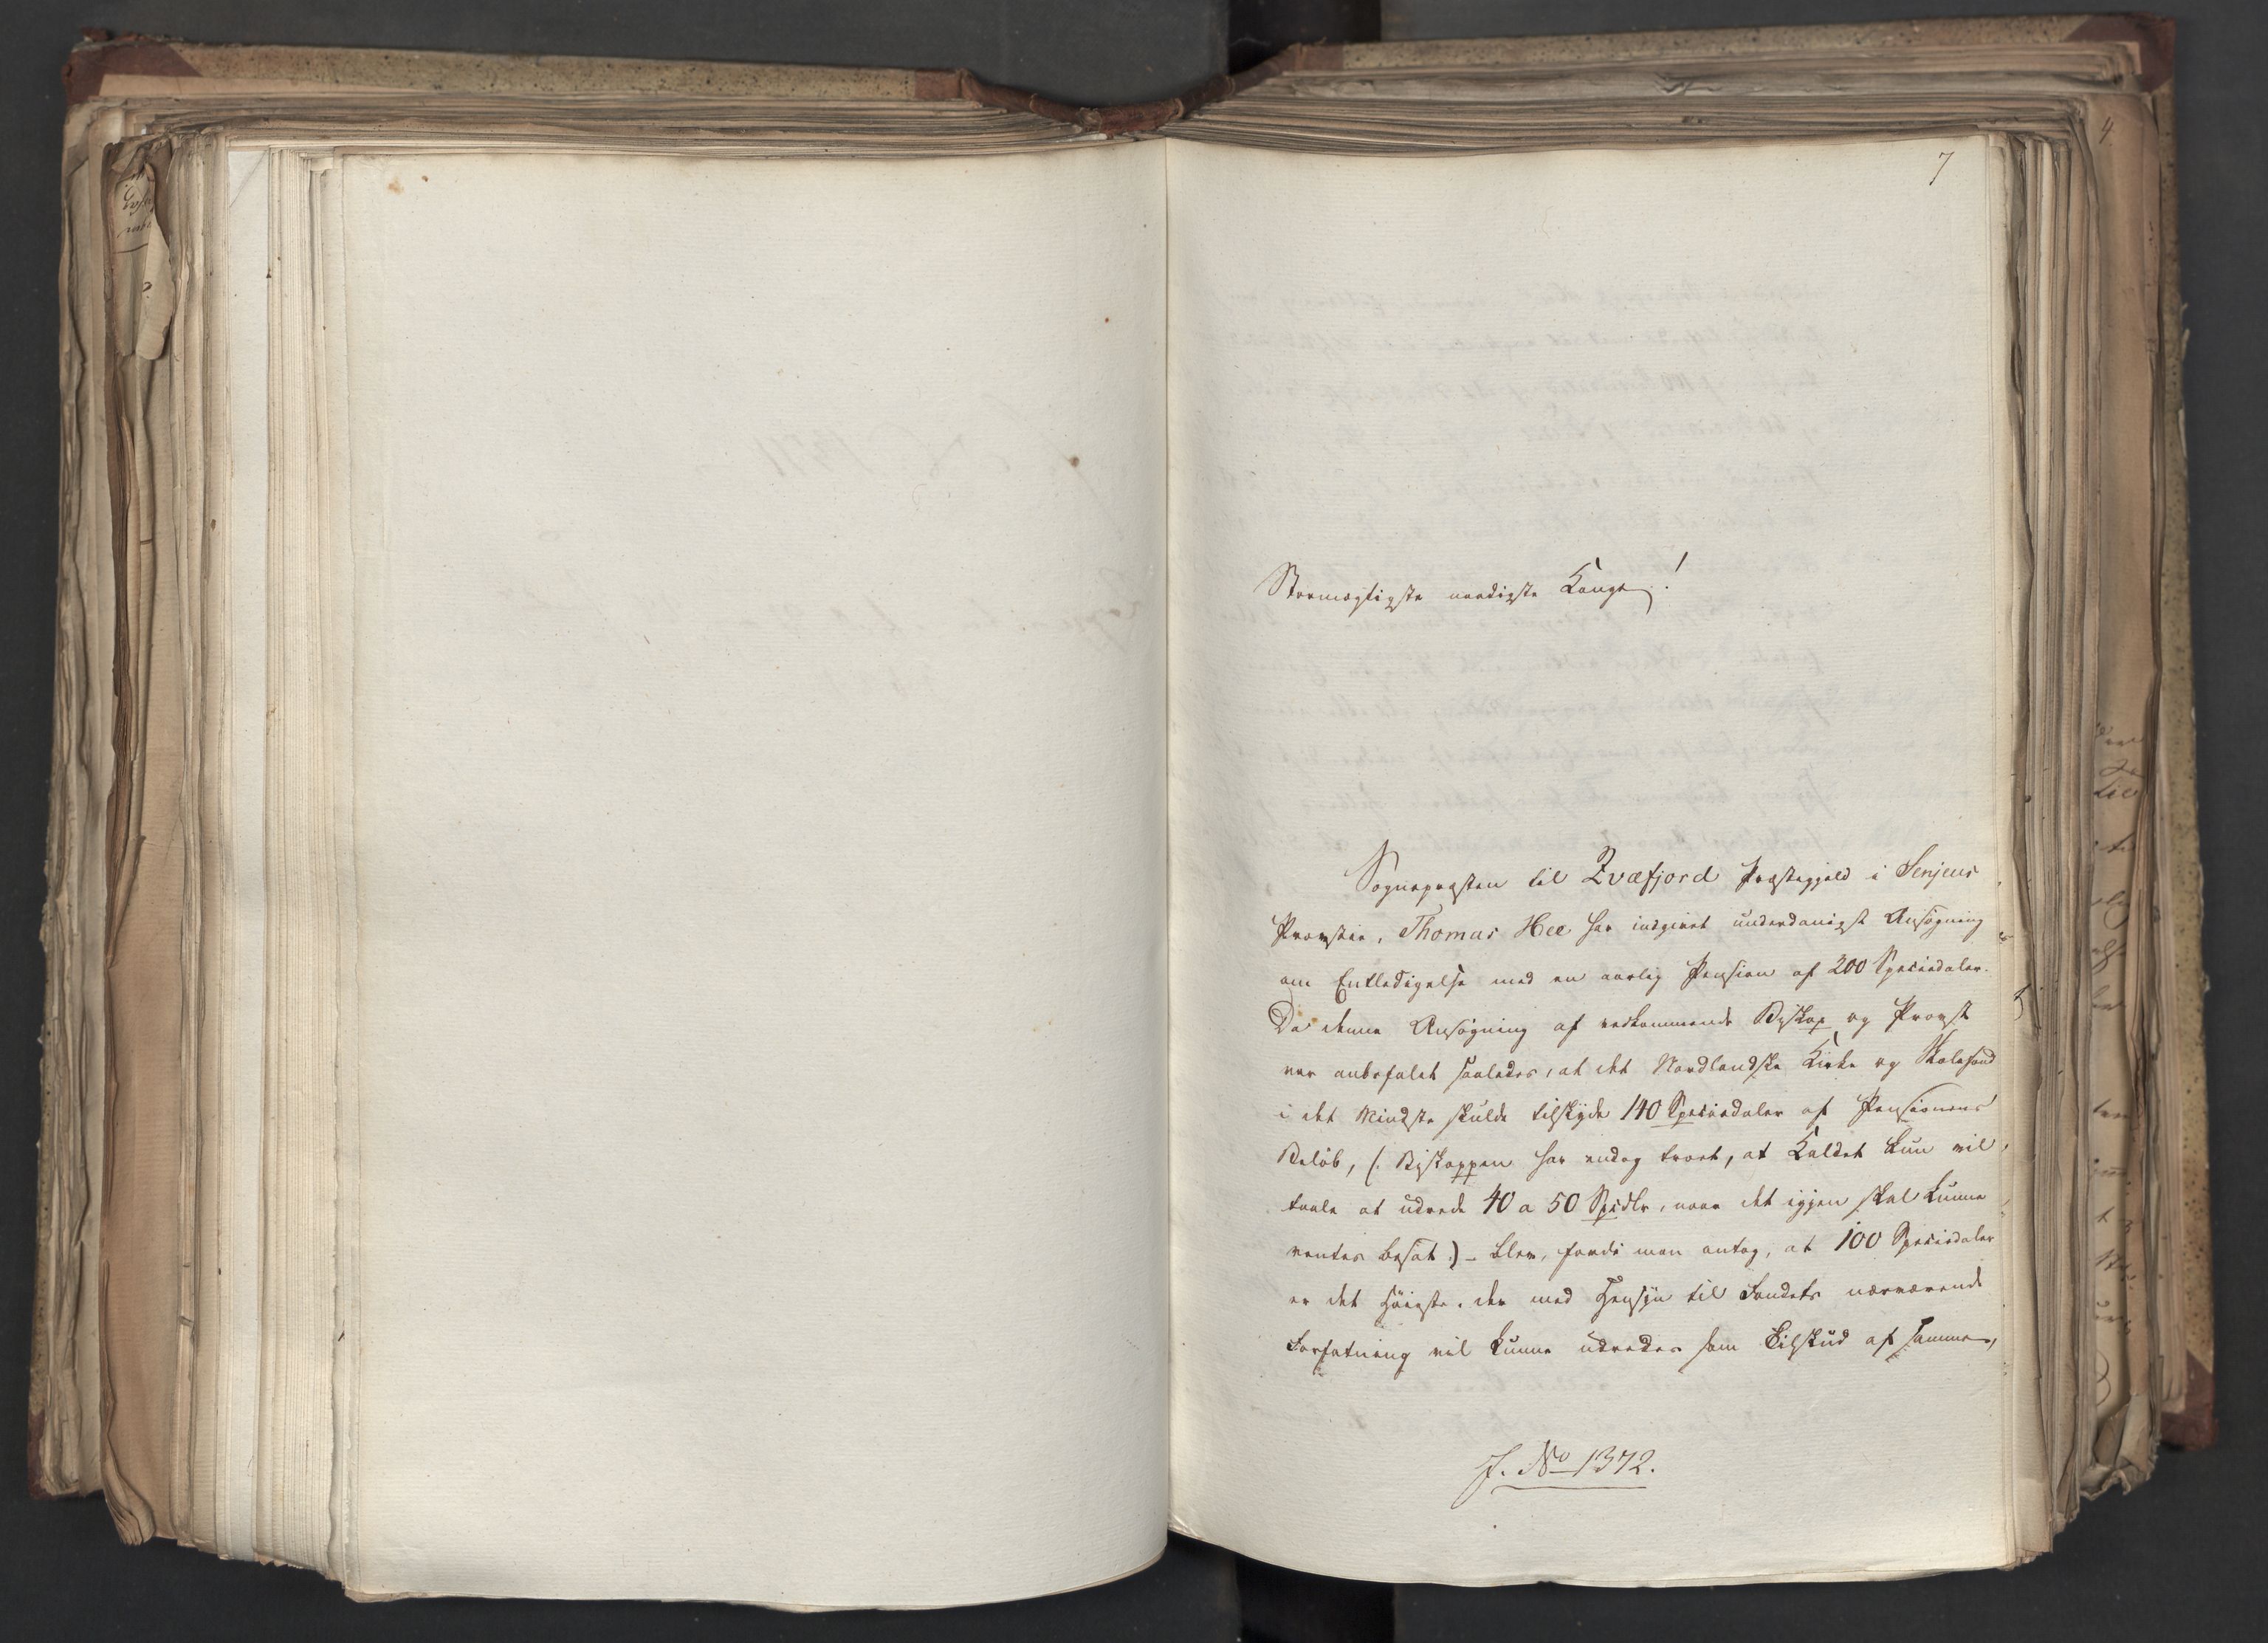 7
Stormægtigste naadigste Konge!
Sognepræsten til Qvæfjord Præstegjeld i Senjens
Provstie, Thomas Hee har indgivet underdanigst Ansøgning
om Entledigelse med en aarlig Pension af 200 Speciedaler.
Da denne Ansøgning af vedkommende Biskop og Provst
var anbefalet saaledes, at det Nordlandske Kirke og Skolefond
i det Mindste skulde tilskyde 140 Speciedaler af Pensionens
Beløb, (: Biskoppen har endog troet, at Kaldet kun vil
taale at udrede 40 a 50 Spdlr, naar det igjen skal kunne
ventes besat :) – blev, fordi man antog, at 100 Speciedaler
er det Høieste, der med Hensyn til Fondets nærværende
Forfatning vil kunne udredes som Tilskud af samme,
J. No 1372.